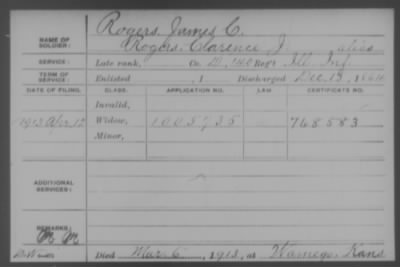 Rogers, James C.
NAME OF SOLDIER:
Rogers, Clarence J. alias
SERVICE: Late rank, Co. D, 140 Reg't Ill. Inf.
TERM OF SERVICE: Enlisted , 1 Discharged Dec. 13, 1864
DATE OF FILING. CLASS. APPLICATION NO. LAW. CERTIFICATE NO.
Invalid,
1913 Apr. 12 Widow, 1005735 768583
Minor,
ADDITIONAL SERVICES:
REMARKS:
Died Mar. 6, 1913, at Wamego, Kans